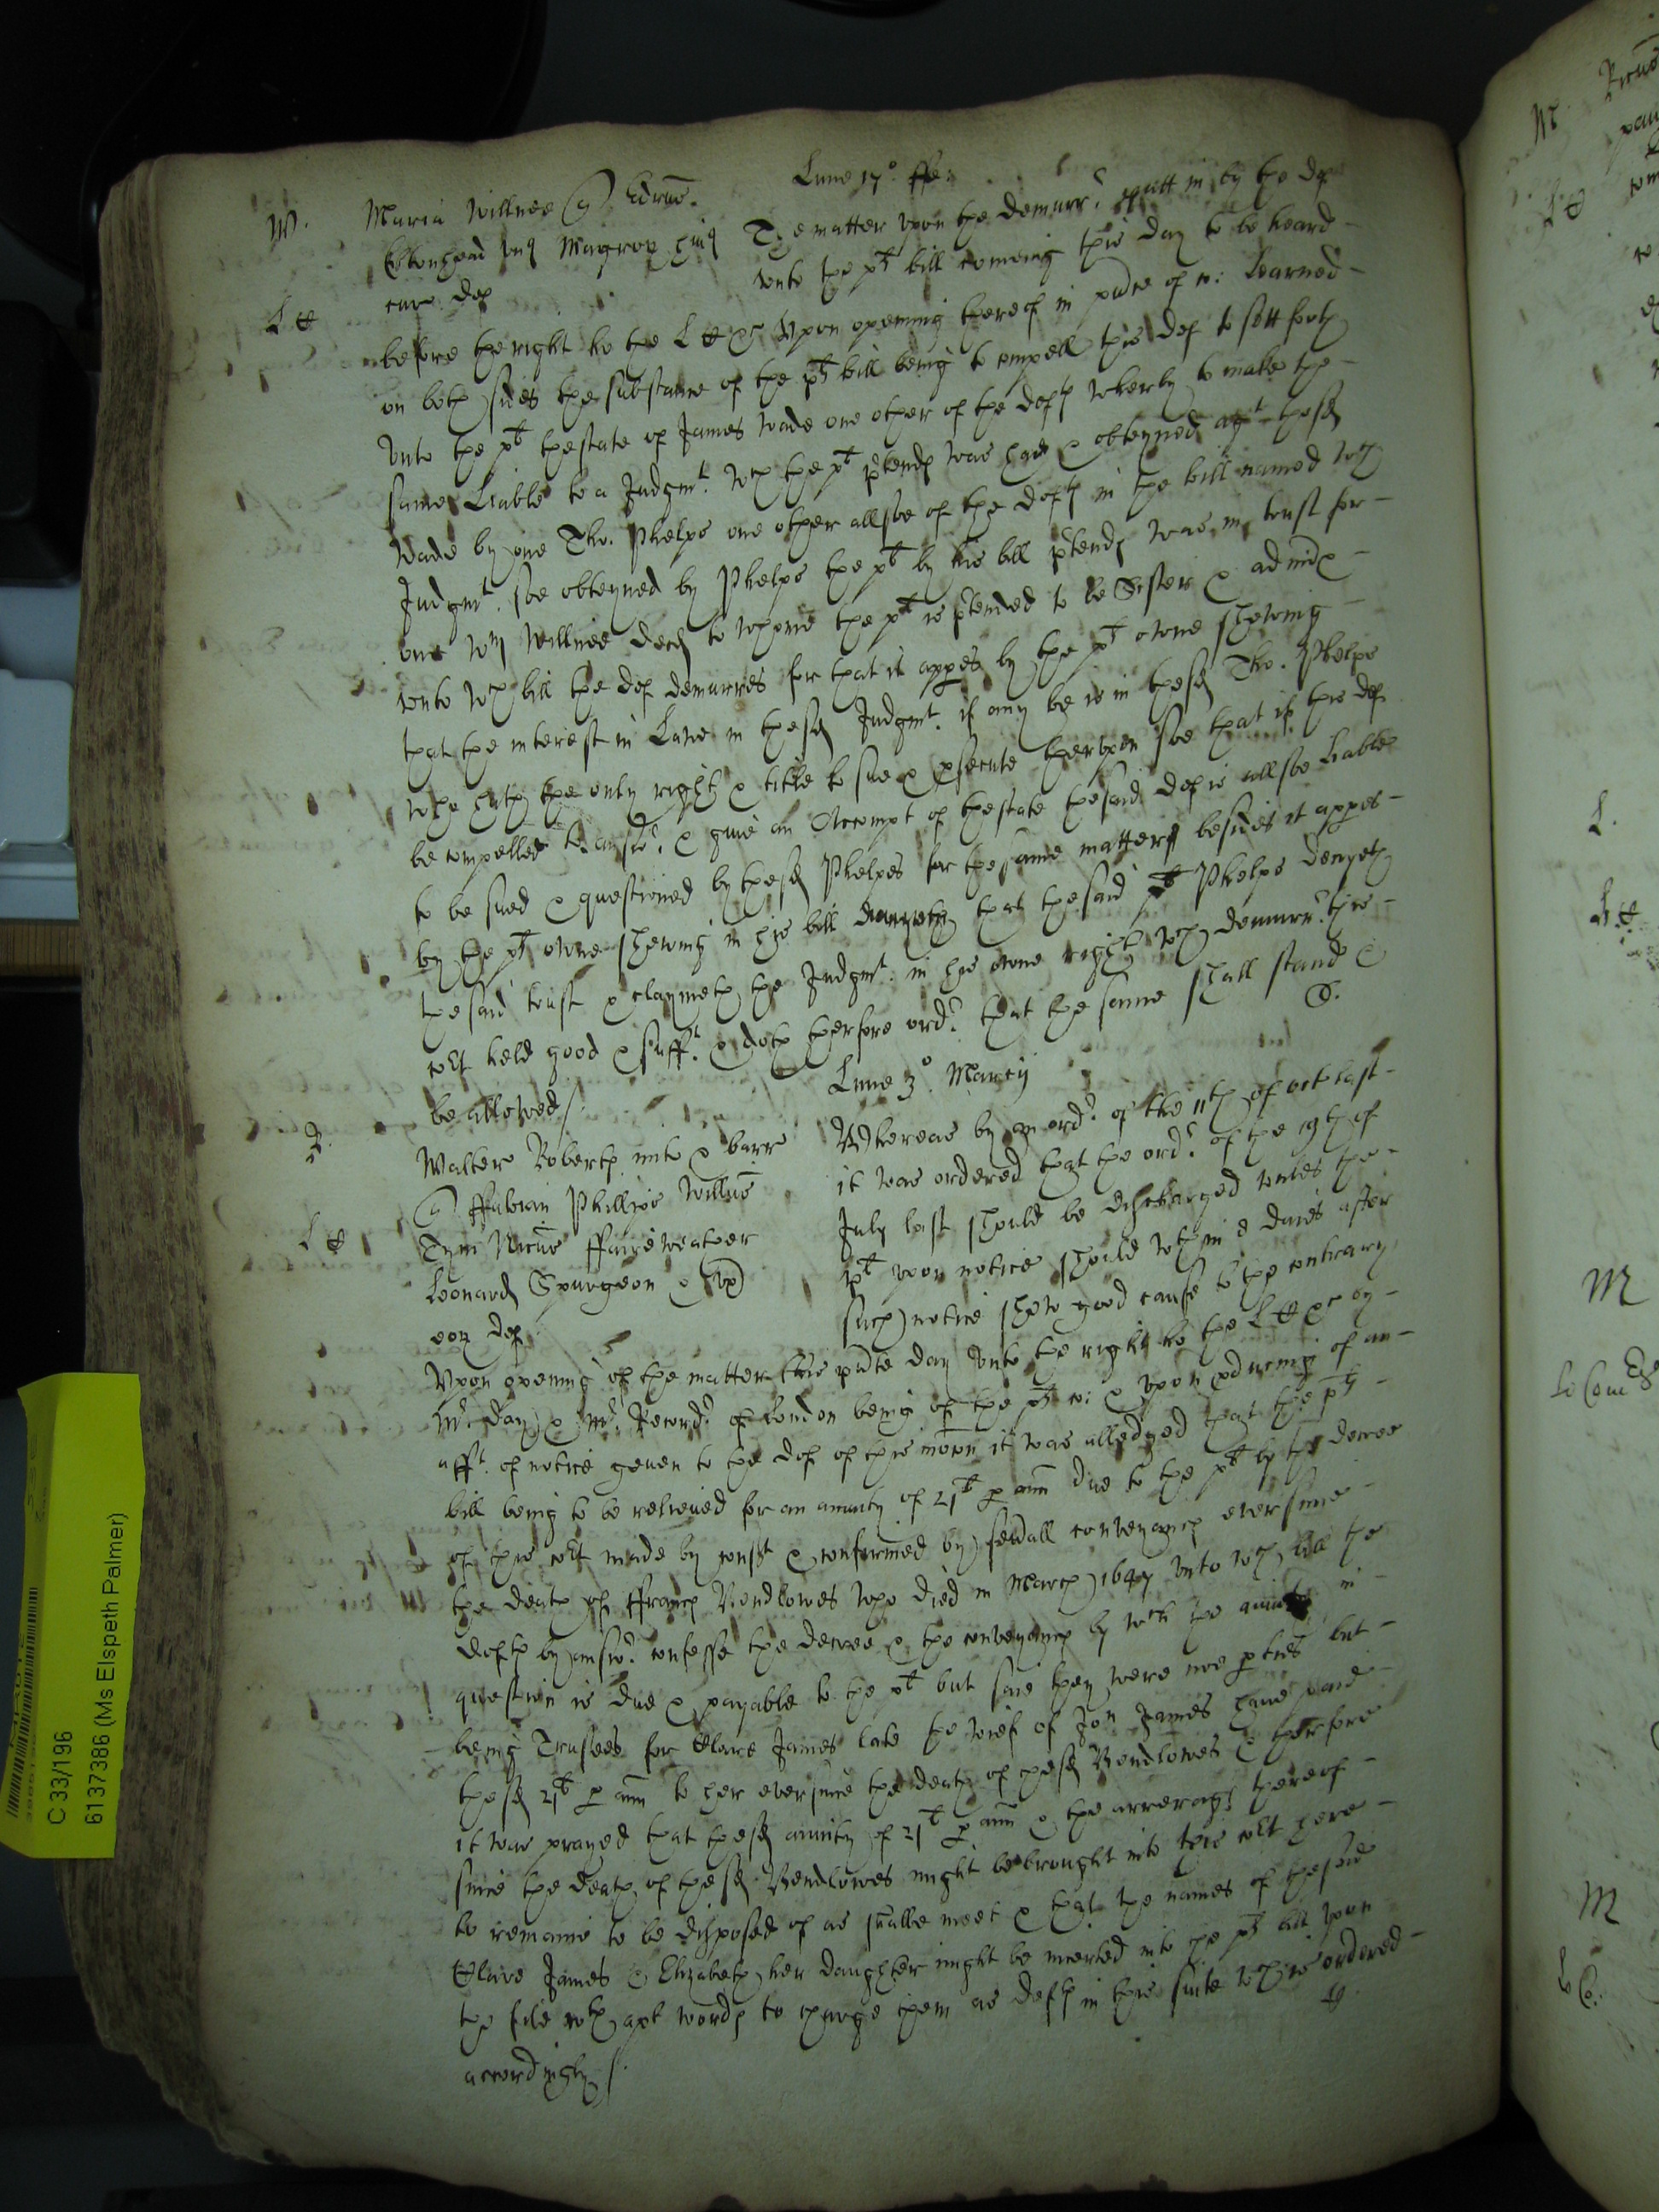 Lune 17°. ffe:
W. Maria Willnee Edrus.
Eltonhead vnq Magrorum
cur def
The matter vpon the demurr. putt in by the def
vnto the pts bill comeing this day to be heard
L &
before the right ho the L &c Vpon opening thereof in pnce of co: Learned
on both sides the substance of the pts bill being to compell this def to sett forth
vnto the pt thestate of James Wade one other of the defts wherby to make the
same Liable to a Judgmt. wch the pt ptends was had & obteyned agt thesd
Wade by one Tho. Phelps one other allsoe of the defts in the bill named wch
Judgmt. soe obteyned by Phelps the pt by his bill ptends was in trust for
one Wm Willnee decd to whome the pt is ptended to be Sister & admix
vnto wch bill the def demurres for that it appes by the pts owne shewing
that the interest in Lawe in thesd Judgmt. if any be is in thesd Tho. Phelps
who hath the only right & title to sue & psecute therevpon soe that if this def
be compelled to answ. & giue an Accompt of thestate thesaid def is allsoe liable
to be sued & questioned by thesd Phelpes for thesame matters besides it appes
by the pts owne shewing in his bill that thesaid Phelps denyeth
the said trust & claymeth the Judgmt. in his owne right wch demurr. this
cort held good & sufft. & doth therfore ord. that the same shall stand &
be allowed /.
S.
Lune 3°. Marcij
R.
Walter Roberts & barr
ffabian Phillips Willus
Tym Nicus ffaireweather
L &
Leonard Spurgeon & vx
eor def
Whereas by an ord. of the 11th of oct last
it was ordered that the ord. of the 19th of
July last should be discharged vnles the
pt vpon notice should wthin 8 daies after
such notice shew good cause to the contrary
Vpon opening of the matter this pnte day vnto the right ho the L &c by
Mr. Day & Mr. Record. of London being of the pts co: & vpon pduceing of an
afft. of notice geuen to the def of this mocon it was alledged that the pts
bill being to be releiued for an annuity of 21£ p ann due to the pt by the decree
of this cort made by const & confirmed by seuall conveyances ever since
the death of ffrancs Bendlowes who died in March 1647 vnto wch bill the
defts by answ. confesse the decree & the conveyance by wch the annuity in
question is due & payable to the pt but saie they were noe pties but
being Trustees for Clare James late the wief of Jon James haue paid
thesd 21£ p ann to her ever since the death of thesd Bendlowes & therfore
it was prayed that thesd annuity of 21£ p ann & the arrerags thereof
since the death of thesd Bendlowes might be brought into this cort here
to remaine to be disposed of as shalbe meet & that the names of thesaid
Clare James & Elizabeth her daughter might be incerted into the pts bill vpon
the file wth apt words to charge them as defts in this suite wch is ordered
accordingly /.
C 33/196
6137386 (Ms Elspeth Palmer)